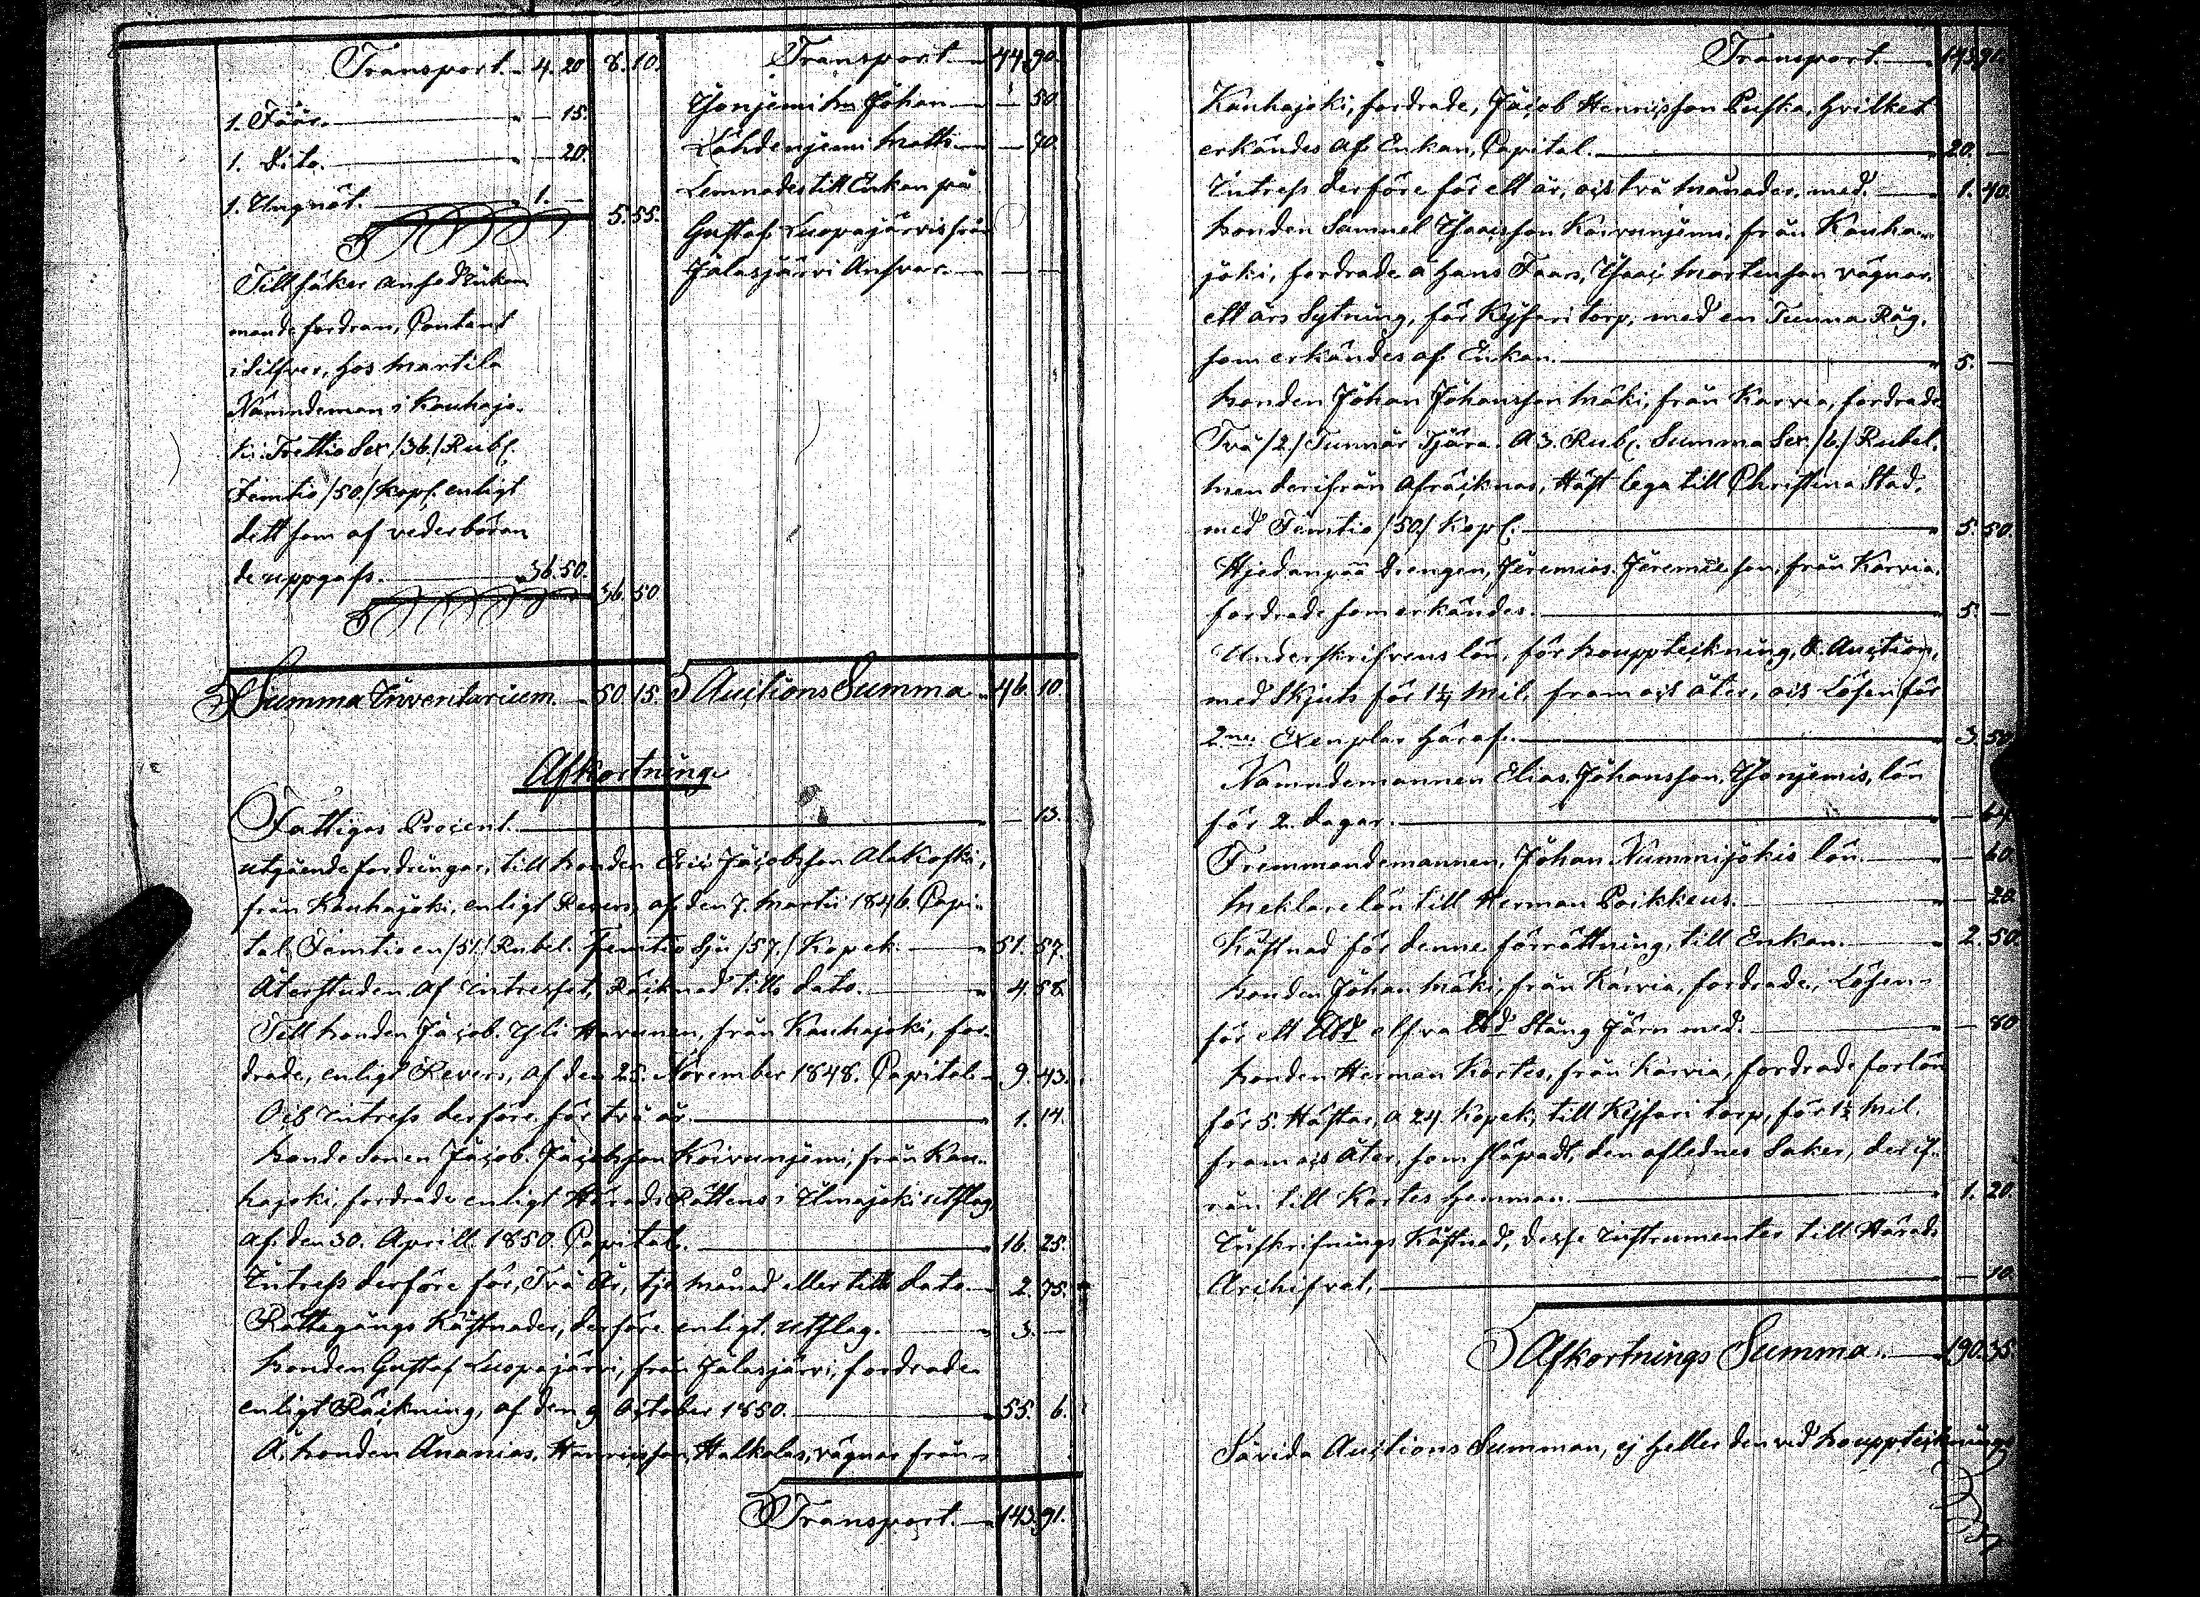 Transport. 4. 20 8. 10.
1. Fåår. 15.
1. Dito. 20.
1. Ungnöt. 1. —
5. 55.
mande fordran, Contant
i silfver, hos Martila
Nämndeman i Kauhajo-
ki Trettio Sex /36./ Rubl.
Femtio /50./ Kopk. enligt
ditt som af vederböran
de uppgafs. 36. 50.
36. 50
Summa Inventarium. 50. 15.
Transport. 44. 90.
Johan — 50
Lähdenjemi Matts — 70.
Lemnades till Enkan på
Gustaf Luopajärvis från
Jalasjärvi Ansvar. — —
Auctions Summa 46. 10.
Afkortning
Fattiges Procent. — 13.
utgående fordringar, till bonden Eric Jacobsson Alakoski,
från Kauhajoki, enligt Revers, af den 7. Martii 1846. Capi-
tal Femtio en /51./ Rubel. Femtio Sju /57./ Kopek. 51. 57.
Återstuden af Intresset, Räcknad tills dato. 4. 58.
Till bonden Jacob Yli Havunen, från Kauhajoki, for-
drade, enligt Revers, af den 25. November 1848. Capital 9. 43.
Och Intress derföre för två år. 1. 14.
Bonde Sonen Jacob Jacobsson Koivunjemi, från Kau-
hajoki, fordrade enligt Härads Rättens i Ilmajoki utslag
af den 30. Aprill 1850. Capital. 16. 25.
Intress derföre för, Två År, månad eller tills dato 2. 75.
Rättegångs Kåstnader, derföre enligt utslag. 3. —
bonden Gustaf Luopajärvi, från Jalasjärvi, fordrade
enligt Räckning, af den 9 October 1850. 55. 6.
Å bonden Ananias Henricsson Halkolas, vägnar från
Transport. 143. 91.
Transport. 143. 91.
Kauhajoki, fordrade, Jacob Henricsson Puska, hvilket
erkändes af Enkan, Capital. 20. —
Intress derföre för ett år, och två månader, med. 1. 40.
bonden Samuel Isacsson Koivunjemi, från Kauha-
joki, fordrade å hans Faars, Isaac Martensson vägnar
ett års Sytning, för Kejsari torp, med en Tunna Råg,
som erkändes af Enkan. 5. —
bonden Johan Johansson Mäki, från Karvia, fordrade
Två /2./ Tunnår Tjära. A 3. Rubl. Summa Sex /6./ Rubel.
men derifrån afräcknas, Häst lega till Christina Stad,
med Femtio /50/ Kopk. 5. 50.
Hjedanpää Drengen, Jeremias Jeremiesson, från Karvia,
fordrade som erkändes. 5. —
Underskrifvens lön, för bouppteckning, & Auction,
med Skjuts för 1¼ Mil, fram och åter, och Lösen för
2ne. Exemplar häraf. 3. 50.
Nämndemannen Elias Johansson, lön
för 2. dagar. — 64.
Fremmandemannen, Johan Nummijokis lön. — 60.
Meklare lön till Herman Poikkeus. — 20.
Kåstnad för denne förrättning, till Enkan. 2. 50.
bonden Johan Mäki, från Karvia, fordrade, Lösen
för ett Stång Järn med. — 80
bonden Herman Kortes, från Karvia, fordrade forlön
för 5. Hästar, a 24 Kopek, till Kejsari torp, för 1½ Mil.
fram och åter, som släpadt, den aflednes Saker, der if-
rån till Kortes hemman. 1. 20.
Inskrifnings Kåstnad, desse Instrumenter till Härads
Archifvet. — 10.
Afkortnings Summa 190. 35.
Såvida Auctions Summan, ej heller den vid bouppteknings